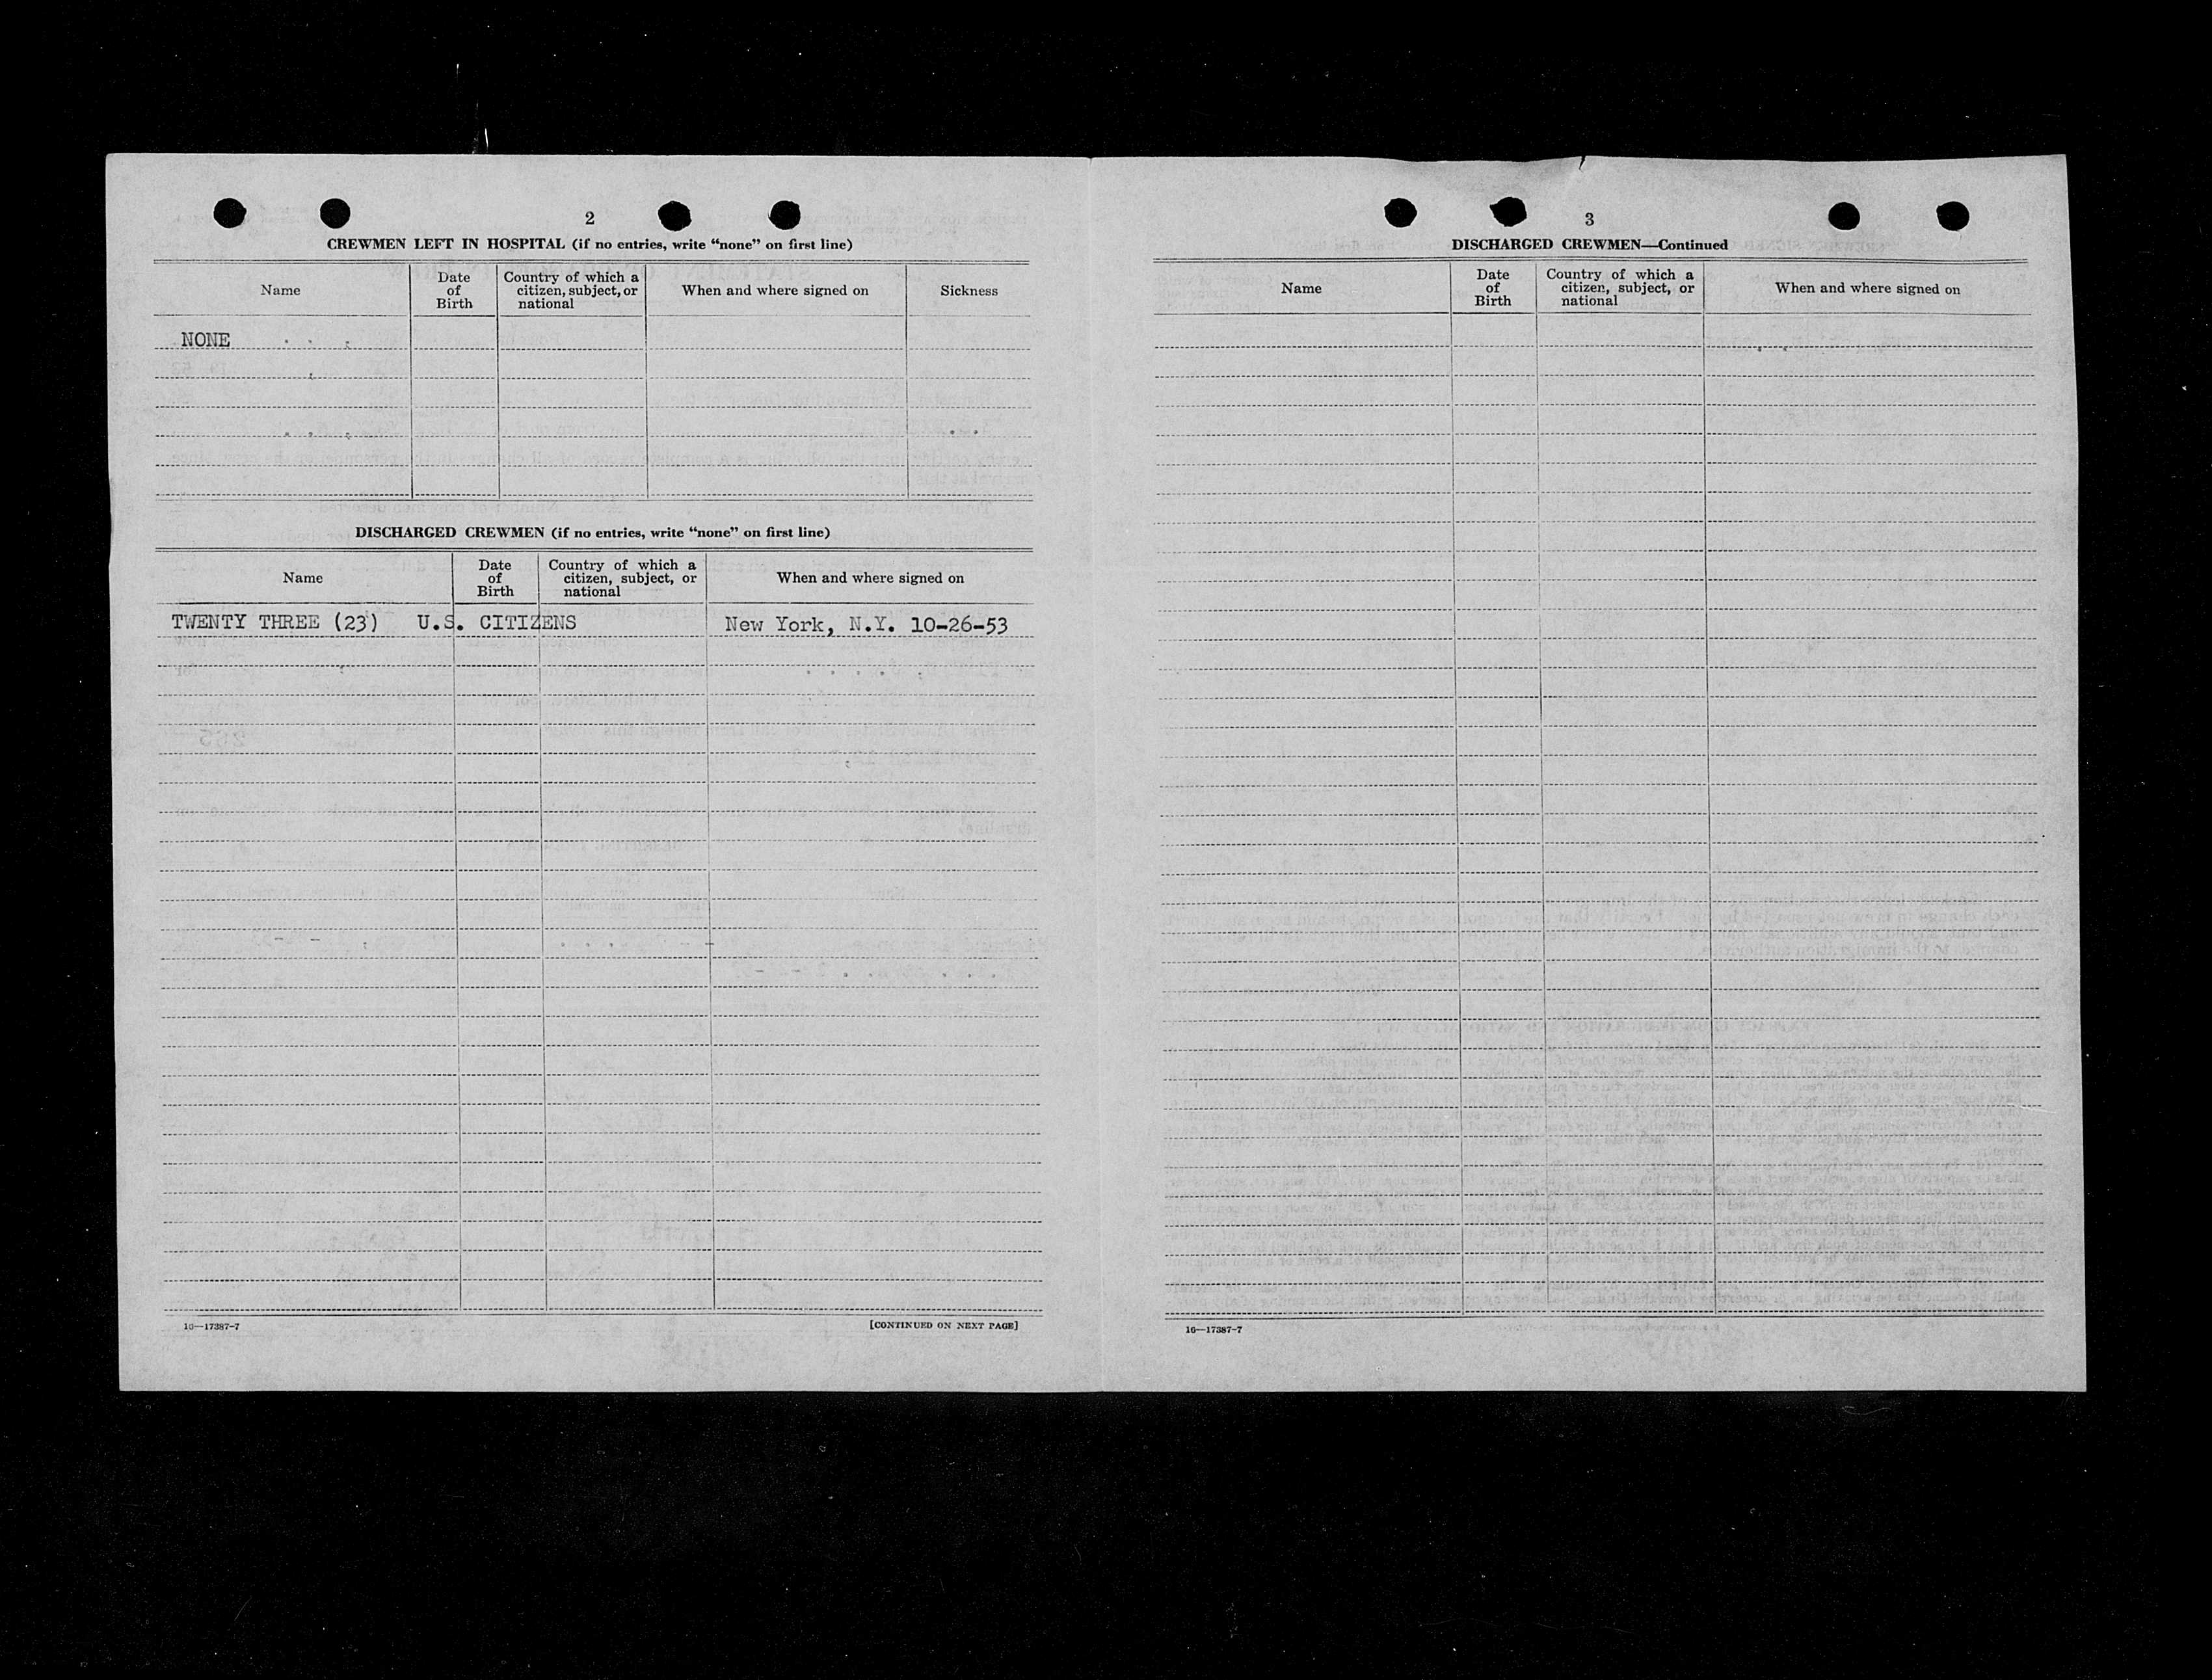 2
CREWMEN LEFT IN HOSPITAL (if no entries, write “none” on first line)
Name
Date
of
Birth
Country of which a
citizen, subject, or
national
When and where signed on
Sickness
NONE
DISCHARGED CREWMEN (if no entries, write “none” on first line)
Name
Date
of
Birth
Country of which a
citizen, subject, or
national
When and where signed on
TWENTY THREE (23) U.S. CITIZENS New York, N.Y. 10-26-53
16—17387-7
[CONTINUED ON NEXT PAGE]
3
DISCHARGED CREWMEN—Continued
Name
Date
of
Birth
Country of which a
citizen, subject, or
national
When and where signed on
16—17387-7